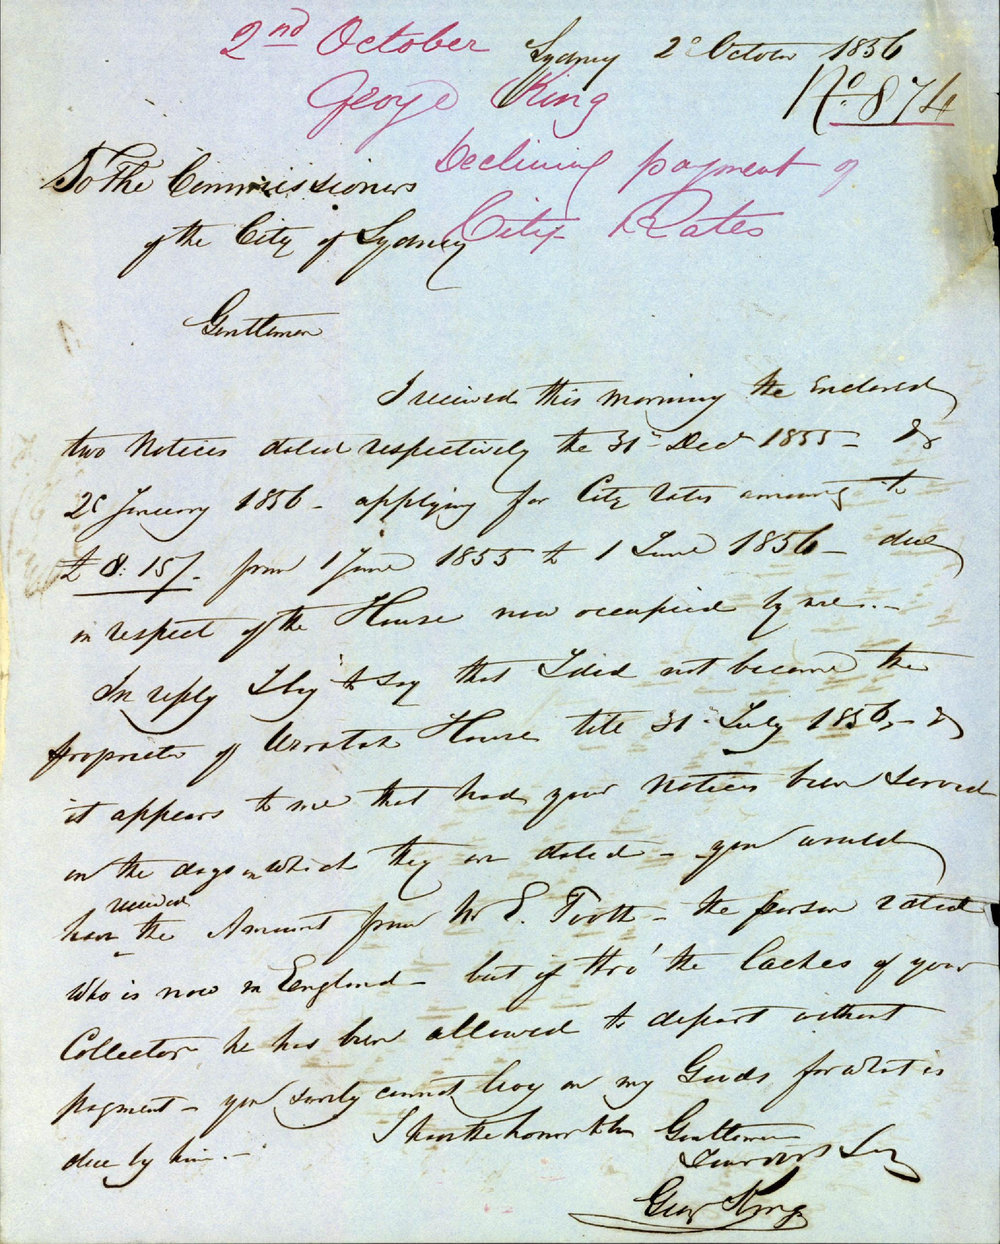 2nd October
George King
Declining payment of
City Rates
Sydney 2d October 1856
No. 874
To The Commissioners
of the City of Sydney
Gentlemen
I received this morning the Enclosed
two Notices dated respectively the 31st Decr 1855 - &
January 1856 - applying for City Rates amounting to
£8:15/- from 1 June 1855 to 1 June 1856 - due
in respect of the House now occupied by me. -
In reply I beg to say that I did not become the
proprietor of Waratah House till 31st July 1856, - &
it appears to me that had your Notices been served
on the days on which they are dated - you would
have received the Amount from Mr E. Tooth - the person rated
who is now in England - but if thro' the laches of your
Collector he has been allowed to depart without
payment - you surely cannot levy on my Goods for what is
due by him. -
I have the honor to be Gentlemen
Your Obt Ser
Geo King